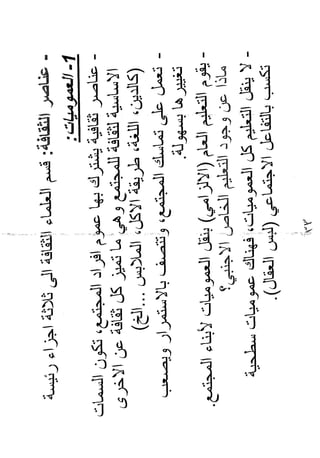 - عناصر الثقافة: قسم العلماء الثقافة الى ثلاثة اجزاء رئيسة
1- العموميات:
- عناصر ثقافية يشترك بها عموم افراد المجتمع، تكون السمات
الاساسية لثقافة المجتمع وهي ما تميز كل ثقافة عن الاخرى
(كالدين، اللغة، طريقة الاكل، الملابس ....الخ)
- تعمل على تماسك المجتمع، وتتصف بالاستمرار ويصعب
تغييرها بسهولة.
- يقوم التعليم العام (الالزامي) بنقل العموميات لأبناء المجتمع.
ماذا عن وجود التعليم الخاص الاجنبي؟
- لا ينقل التعليم كل العموميات، فهناك عموميات سطحية
تكسب بالتفاعل الاجتماعي (لبس العقال).
٣٣